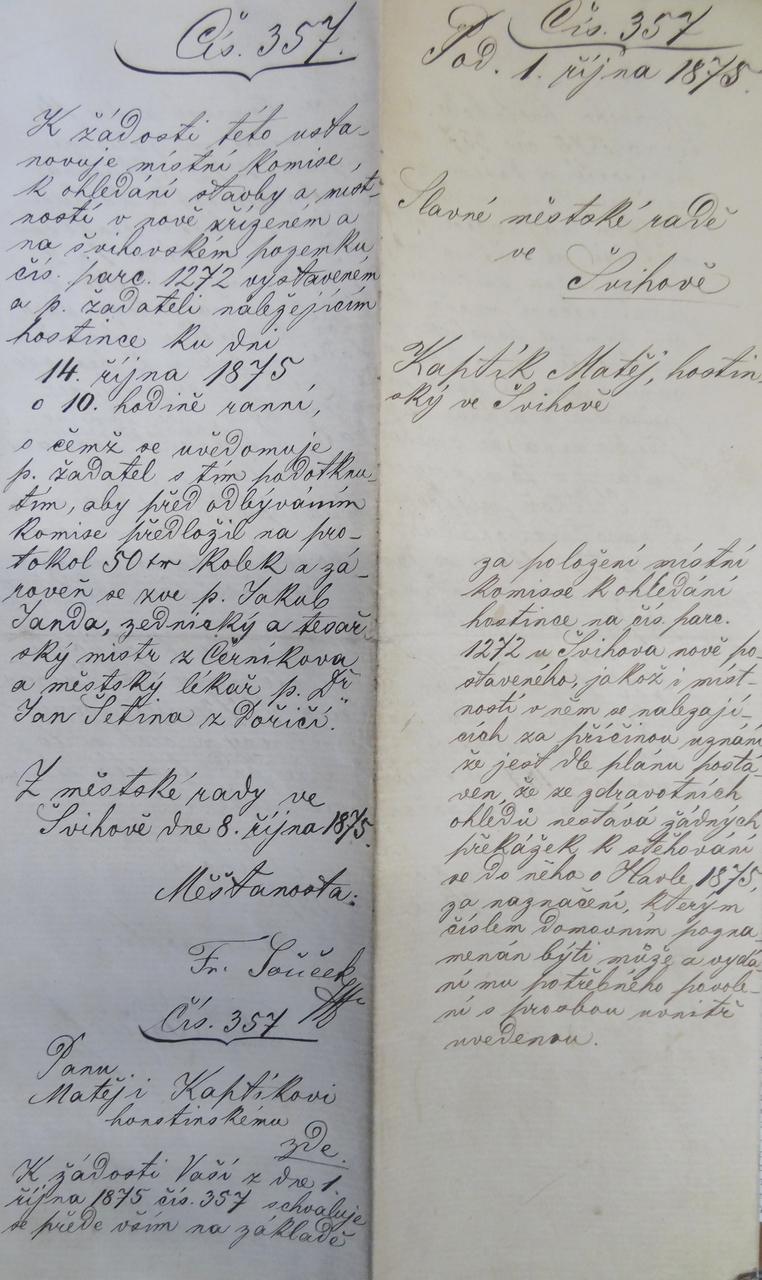 Čís. 357.
K žádosti této usta-
novuje místní komise,
k ohledání stavby a míst-
ností v nově zřízeném a
na švihovském pozemku
čís. parc. 1272 vystaveném
a p. žadateli náležejícím
hostince ku dni
14. října 1875
o 10. hodině ranní,
o čemž se uvědomuje
p. žadatel s tím podotknu-
tím, aby před odbýváním
komise předložil na pro-
tokol 50 kr kolek a zá-
roveň se zve p. Jakub
Janda, zednický a tesař-
ský mistr z Černíkova
a městský lékař p. Dr
Jan Setina z Poříčí."
Z městské rady ve
Švihově dne 8. října 1875.
Měšťanosta:
Fr. Souček
Čís. 357
Panu
Matěji Kaptíkovi
honstinskému
zde.
K žádosti Vaší z dne 1.
října 1875 čís. 357 schvaluje
se přede vším na základě
Čís. 357
Pod. 1. října 1875.
Slavné městské radě
ve
Švihově
Kaptík Matěj, hostin-
ský ve Švihově
za položení místní
komisse k ohledání
hostince na čís. parc.
1272 u Švihova nově po-
staveného, jakož i míst-
ností v něm se nalezají-
cích za příčinou uznání
že jest dle plánu posta-
ven, že ze zdravotních
ohledů nestává žádných
překážek k stěhování
se do něho o Havle 1875,
za naznačení, kterým
číslem domovním pozna-
menán býti může a vydá-
ní mu potřebného povole-
ní s prosbou uvnitř
uvedenou.